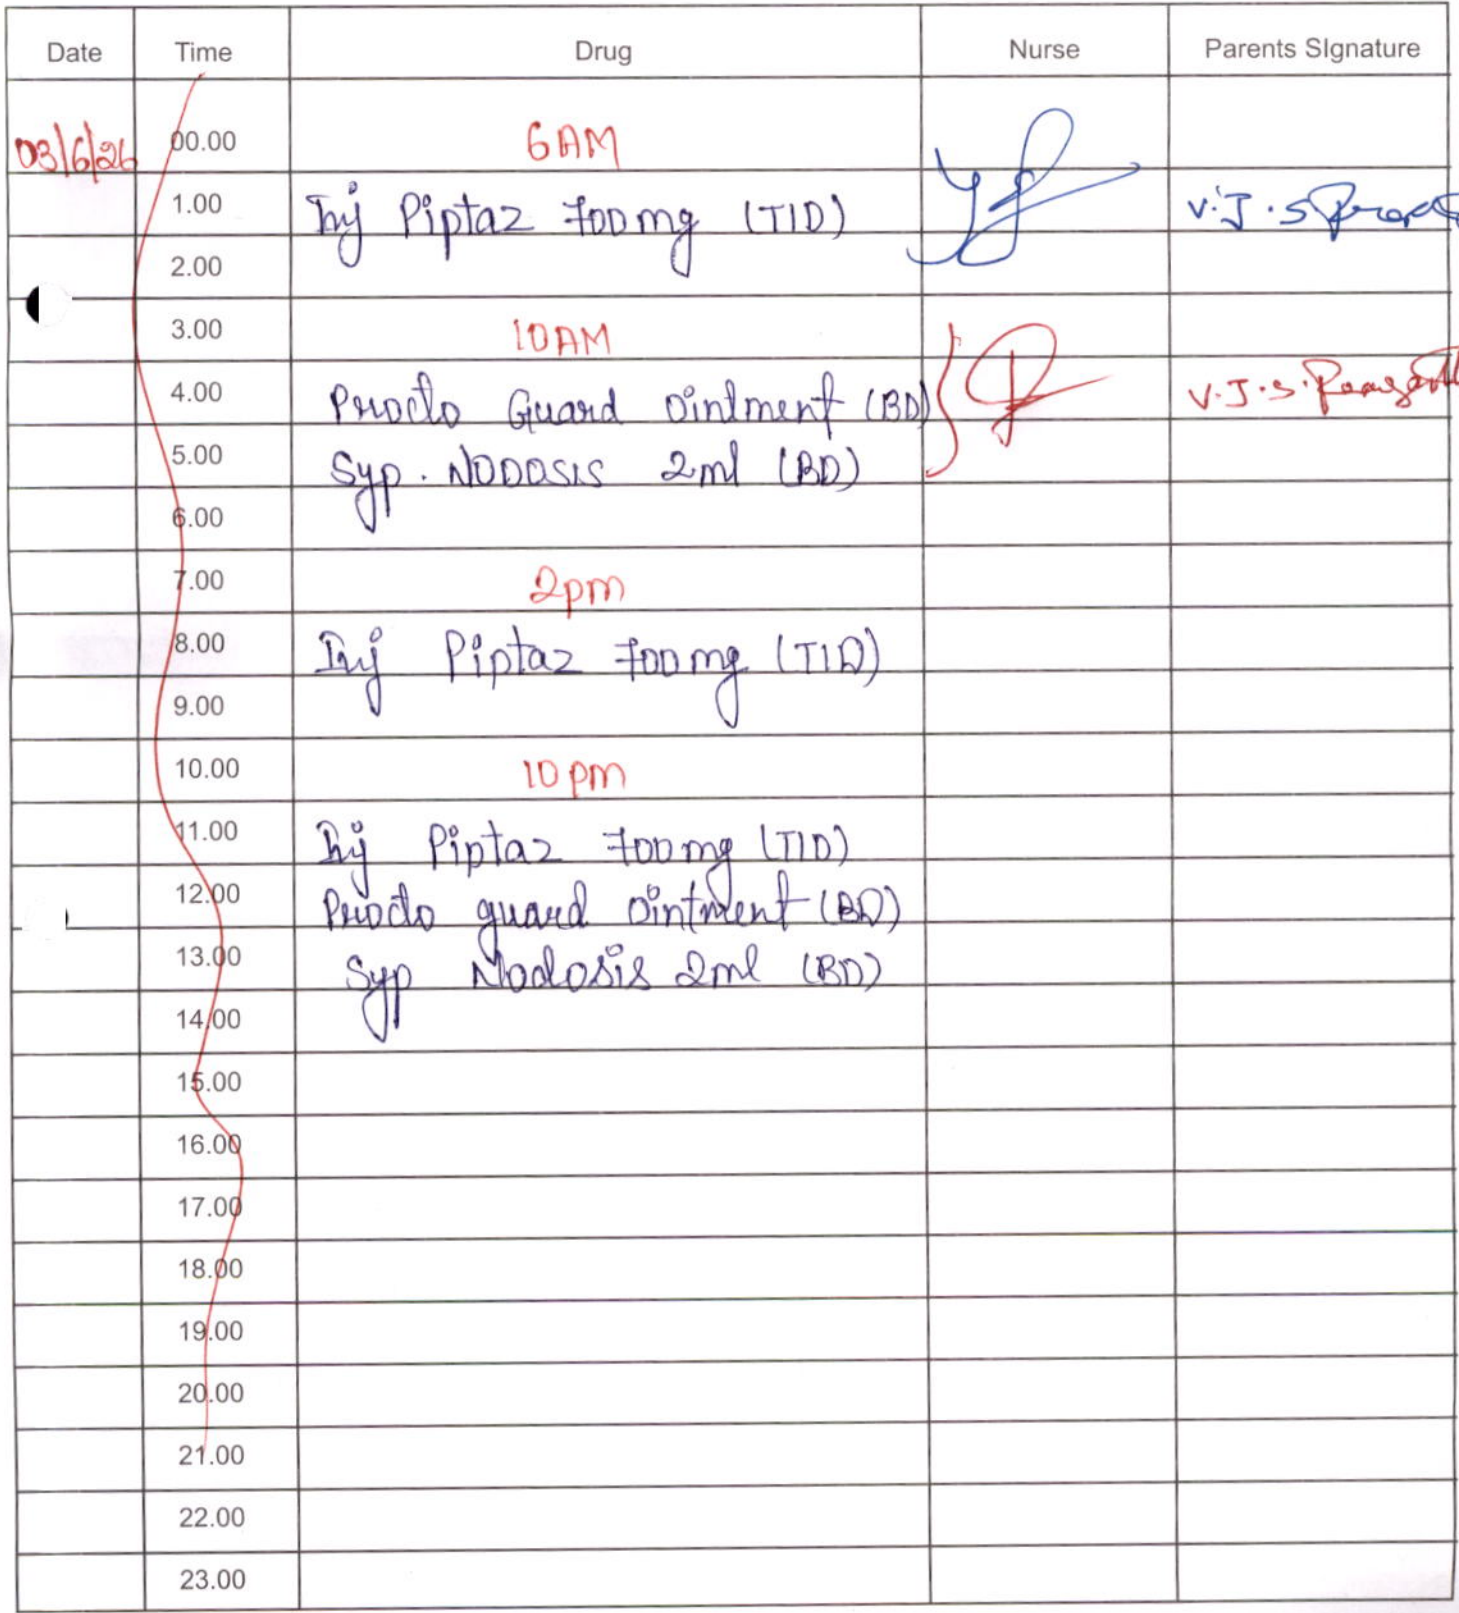 Date Time Drug Nurse Parents SIgnature
03/6/26 00.00 6AM
1.00 Inj Piptaz 700mg (TID) V.J.S
2.00
3.00 10AM
4.00 Procto Guard Ointment (BD) V.J.S.
5.00 Syp. NODOSIS 2ml (BD)
6.00
7.00 2pm
8.00 Inj Piptaz 700mg (TID)
9.00
10.00 10pm
11.00 Inj Piptaz 700mg (TID)
12.00 Procto guard ointment (BD)
13.00 Syp Nodosis 2ml (BD)
14.00
15.00
16.00
17.00
18.00
19.00
20.00
21.00
22.00
23.00